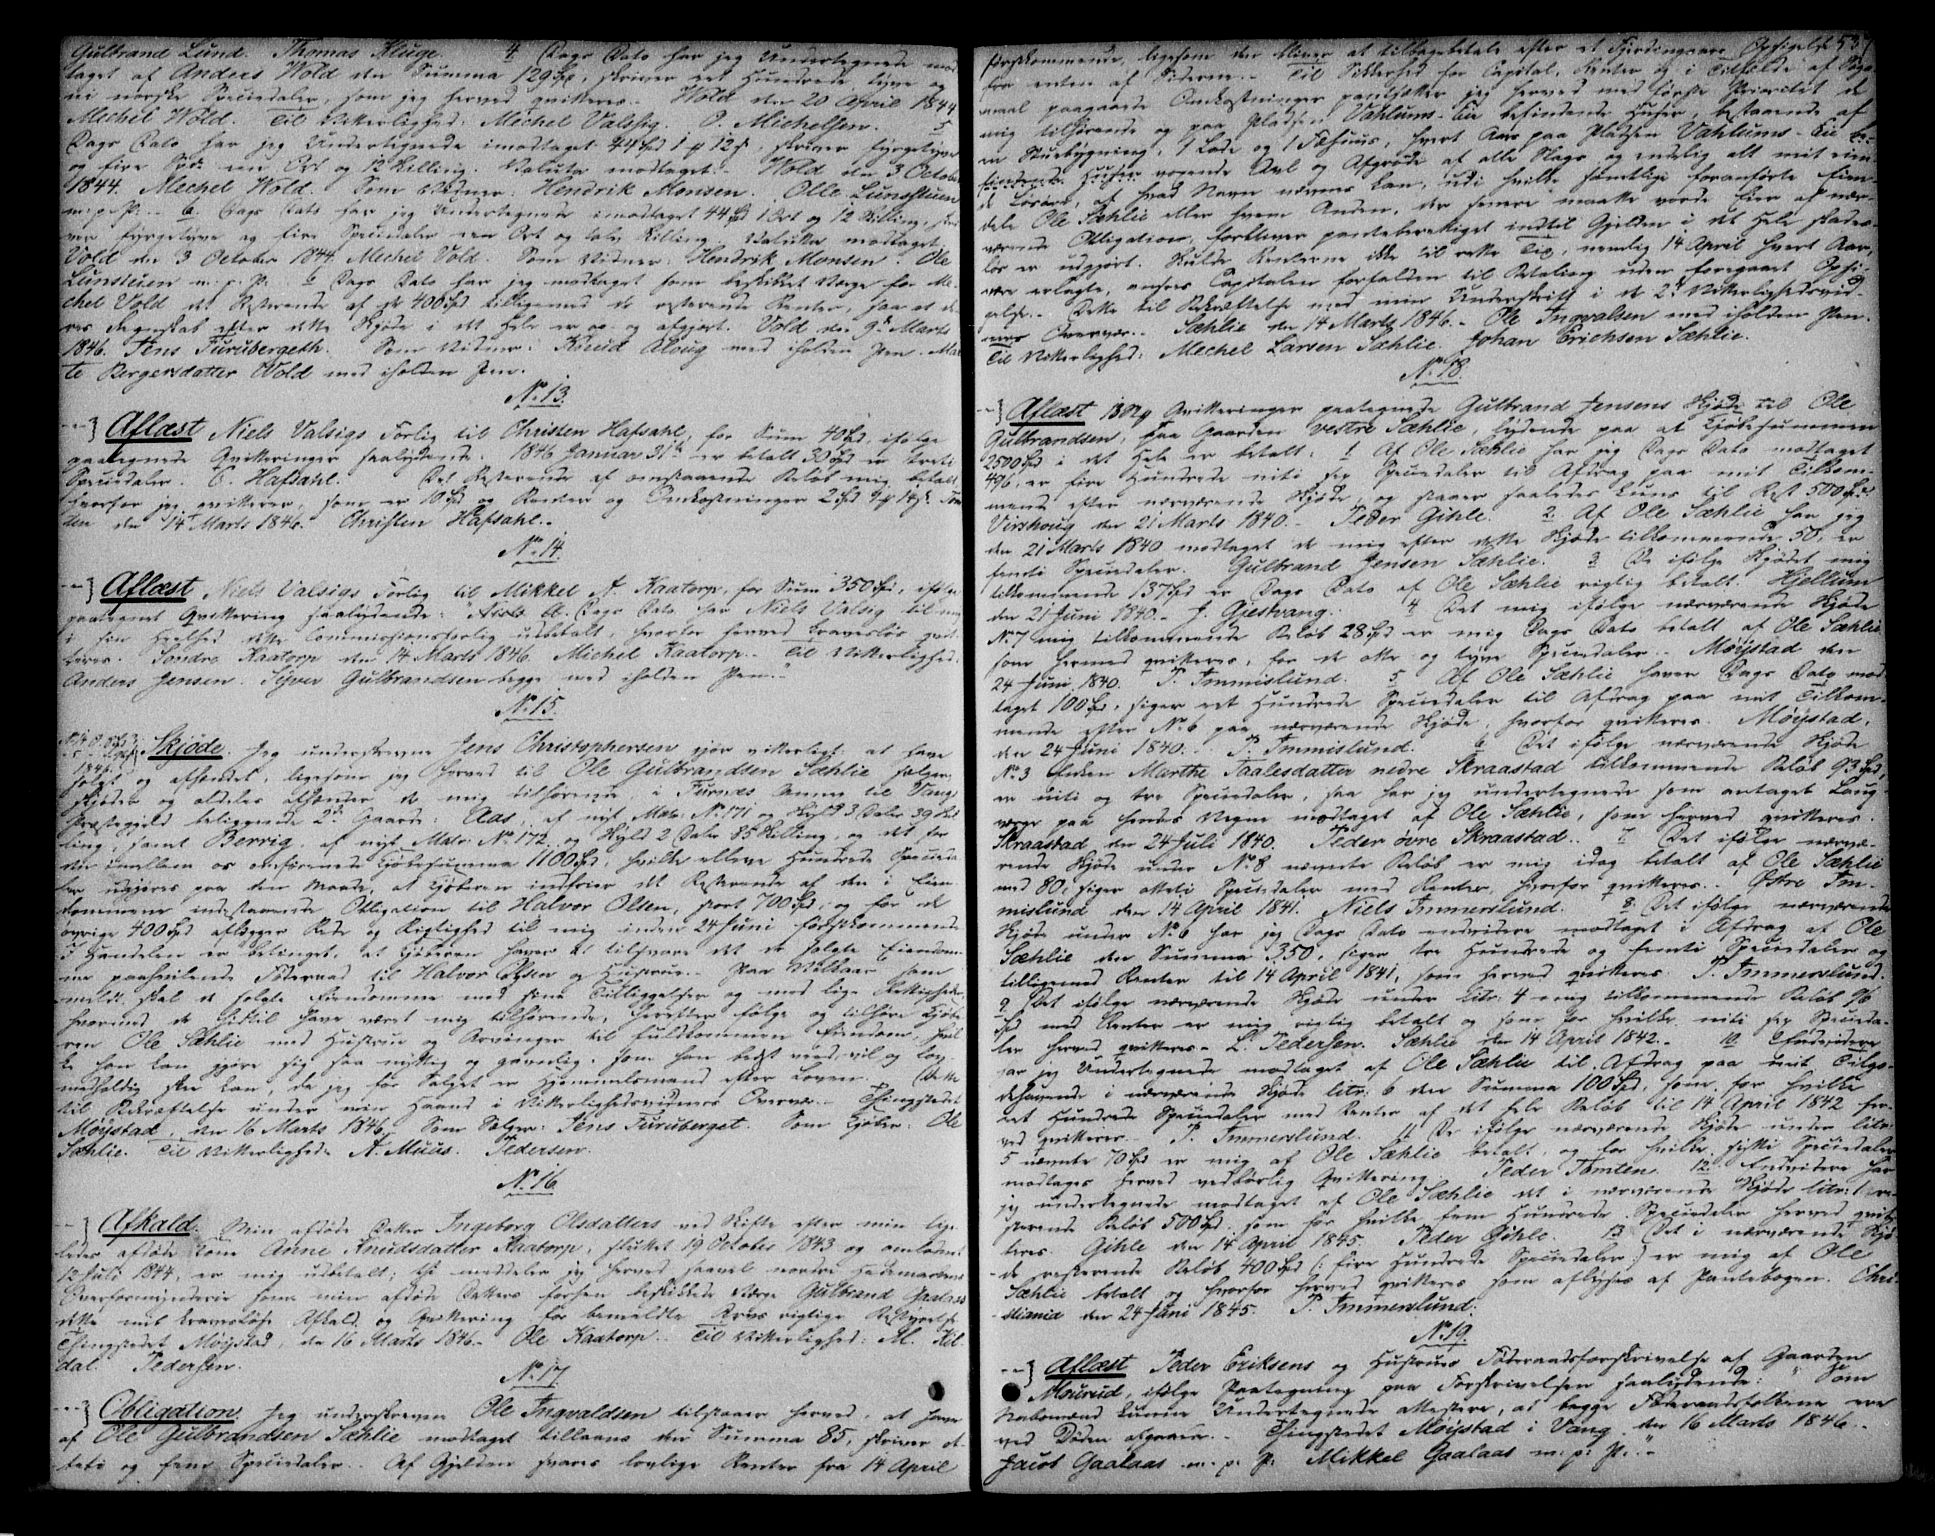 Gulbrand Lund. Thomas Kluge. 4 Dags Dato har jeg Undertegnede mod-
taget af Anders Wold den Summa 129 Spd, skriver eet Hundrede tyve og
ni norske Speciedaler, som jeg herved qvitterer. Wold den 20 April 1844
Mechel Wold. Til Vitterlighed: Mechel Valssig. O. Michelsen. 5
Dags Dato har jeg Undertegnede imodtaget 44 Spd 1 # 12 s, skriver fyrgetyve
og fire Spd een Ort og 12 Skilling. Valuta modtaget. Wold den 3 October
1844. Mechel Wold. Som Vidner: Hendrik Monsen. Olle Lunstuen
m. p. P. 6. Dags Dato har jeg Undertegnede imodtaget 44 Spd 1 Ort og 12 Skilling, skri-
ver fyrgetyve og fire Speciedaler een Ort og tolv Skilling. Valutta modtaget.
Vold den 3 October 1844. Mechel Vold. Som Vidner: Hendrik Monsen. Ole
Lunstuen m. p. P. Dags Dato har jeg modtaget som beskikket Værge for Me-
chel Vold det Resterende af de 400 Spd tilligemed de resterende Renter, saa at de-
res Regnskab efter dette Skjøde i det Hele er op- og afgjort. Vold den 9de Marts
1846. Jens Furubergeth. Som Vidner: Knud Aloug med iholden Pen. Mar-
te Bergersdatter Wold med iholden Pen.
No 13.
Aflæst Niels Valsigs Forlig til Christen Hafsahl, for Sum 40 Spd, ifølge
paategnede Qvitteringer saalydende: 1846 Januar 31te er betalt 30 Spd er treti
Speciedaler. C. Hafsahl. Det Resterende af omstaaende Beløb mig betalt,
hvorfor jeg qvitterer, som er 10 Spd og Renter og Omkostninger 2 Spd
den 14de Marts 1846. Christen Hafsahl.
No 14.
Aflæst Niels Valsigs Forlig til Mikkel A. Kaatorp, for Sum 350 Spd, ifølge
paategnet Qvittering saalydende: Dags Dato har Niels Valsig til mig
i sin Heelhed dette Commissionsforlig udbetalt, hvorfor herved kravesløs qvit-
teres. Søndre Kaatorp den 14 Marts 1846. Michel Kaatorp. Til Vitterlighed:
Anders Jensen. Syver Gulbrandsen begge med iholden Pen.
No 15.
Skjøde. Jeg underskrevne Jens Christophersen gjør vitterligt: at have
1846.
solgt og afhændet, ligesom jeg herved til Ole Gulbrandsen Sæhlie sælger,
skjøder og aldeles afhænder de mig tilhørende, i Furnæs Annex til Vangs
Præstegjeld beliggende 2de Gaarde: Aas, af nyt Matr. No 171 og Skyld 3 Daler 39 Skil-
ling, samt Berrig, af nyt Matr. No 172 og Skyld 2 Daler 85 Skilling, og det for
den imellem os omforenede Kjøbesumma 1100 Spd, hvilke elleve Hundrede Specieda-
ler udgjøres paa den Maade, at Kjøberen indfrier det Resterende af den i Eien-
dommene indestaaende Obligation til Halvor Olsen, stort 700 Spd, og for de
øvrige 400 Spd aflægger Rede og Rigtighed til mig inden 24 Juni førstkommende.
I Handelen er betinget, at Kjøberen haver at tilsvare det de solgte Eiendom-
me paahvilende Føderaad til Halvor Olsen og Hustrue. Paa Vilkaar som
meldt skal de solgte Eiendomme med sine Tilliggelser og med lige Rettigheder
hvormed de hidtil have været mig tilhørende, herefter følge og tilhøre Kjøbe-
ren Ole Sæhlie med Hustrue og Arvinger til fuldkommen Eiendom, hvil-
ke han kan gjøre sig saa nyttig og gavnlig, som han bedst veed, vil og lov-
medholdig skee kan, da jeg for Salget er Hjemmelsmand efter Loven. Dette
til Bekræftelse under min Haand i Vitterlighedsvidners Overvær. Thingstedet
Møystad, den 16 Marts 1846. Som Sælger: Jens Furuberget. Som Kjøber: Ole
Sæhlie. Til Vitterlighed: A. Muus. Pedersen.
No 16.
Afkald. Min afdøde Datter Ingeborg Olsdatters ved Skifte efter min lige-
ledes afdøde Kone Anne Knudsdatter Kaatorp, sluttet 19 October 1843 og omlodnet
12 Juli 1844, er mig udbetalt; thi meddeler jeg herved saavel nordre Hedemarkens
Overformynderie som min afdøde Datters forhen beskikkede Værge Gulbrand Gaalaas
dette mit kravesløse Afkald og Qvittering for bemeldte Arvs rigtige Bestyrelse.
Thingstedet Møystad, den 16 Marts 1846. Ole Kaatorp. Til Vitterlighed: M. Kil-
dal. Pedersen.
No 17.
Obligation. Jeg underskrevne Ole Ingvaldsen tilstaaer herved, at have
af Ole Gulbrandsen Sæhlie modtaget tillaans den Summa 85, skriver ot-
teti og fem Speciedaler. Af Gjelden svares lovlige Renter fra 14 April
førstkommende, ligesom den bliver at tilbagebetale efter et Fjerdingaars Opsigelse 537
fra enten af Siderne. Til Sikkerhed for Capital, Renter og i Tilfælde af Søgs-
maal paagaaende Omkostninger pantsætter jeg herved med første Prioritet de
mig tilhørende og paa Pladsen Vahlums-Eie befindende Huser, bestaaende af
en Stuebygning, 1 Lade og 1 Fæhuus, hvert Aars paa Pladsen Vahlums-Eie be-
findende Huser voxende Avl og Afgrøde af alle Slags og endelig alt mit eien-
de Løsøre, af hvad Navn nævnes kan, udi hvilke samtlige foranførte Eien-
dele Ole Sæhlie eller hvem Anden, der senere maatte vorde Eier af nær-
værende Obligation, forbliver panteberettiget indtil Gjelden i det Hele skades-
løs er udgjort. Skulde Renterne ikke til rette Tid, nemlig 14 April hvert Aar,
være erlagte, ansees Capitalen forfalden til Betaling uden foregaaet Opsi-
gelse. Dette til Bekræftelse med min Underskrift i de 2de Vitterlighedsvid-
ners Overvær. Sæhlie den 14 Marts 1846. Ole Ingvalsen med iholden Pen.
Til Vitterlighed: Mechel Larsen Sæhlie. Johan Erichsen Sæhlie.
No 18.
Aflæst Qvitteringer paategnede Gulbrand Jensens Skjøde til Ole
Gulbrandsen, paa Gaarden vestre Sæhlie, lydende paa at Kjøbesummen
2500 Spd i det Hele er betalt: 1 Af Ole Sæhlie har jeg Dags Dato modtaget
496, er fire Hundrede niti sex Speciedaler til Afdrag paa mit Tilkom-
mende efter nærværende Skjøde, og staaer saaledes kuns til Rest 500 Spd.
Virshoug den 21 Marts 1840. Peder Gihle. 2. Af Ole Sæhlie har jeg
den 21 Marts 1840 modtaget de mig efter dette Skjøde tilkommende 50, er
femti Speciedaler. Gulbrand Jensen Sæhlie. 3 De ifølge Skjødet mig
tilkommende 137 Spd er Dags Dato af Ole Sæhlie rigtig betalt. Hjellum
den 21 Juni 1840. J. Gjestvang. 4 Det mig ifølge nærværende Skjøde
No 7 mig tilkommende Beløb 28 Spd er mig Dags Dato betalt af Ole Sæhlie
som hermed qvitteres, for de otte og tyve Speciedaler. Møystad den
24 Juni 1840. P. Immislund. 5 Af Ole Sæhlie haver Dags Dato mod-
taget 100 Spd, siger eet Hundrede Speciedaler til Afdrag paa mit Tilkom-
mende efter No 6 paa nærværende Skjøde, hvorfor qvitteres. Møystad,
den 24 Juni 1840. P. Immislund. 6 Det ifølge nærværende Skjøde
No 3 Enken Marthe Paalesdatter nedre Skraastad tilkommende Beløb 93 Spd,
er niti og tre Speciedaler, saa har jeg undertegnede som antaget Laug-
værge paa hendes Vegne modtaget af Ole Sæhlie, som herved qvitteres.
Skraastad den 24 Juli 1840. Peder øvre Skraastad. 7 Det ifølge nærvæ-
rende Skjøde under No 8 nævnte Beløb er mig idag betalt af Ole Sæhlie
med 80, siger otteti Speciedaler med Renter, hvorfor qvitteres. Østre Im-
mislund den 14 April 1841. Niels Immerslund. 8 Det ifølge nærværende
Skjøde under No 6 har jeg Dags Dato endvidere modtaget i Afdrag af Ole
Sæhlie den Summa 350, siger tre Hundrede og femti Speciedaler og
tilligemed Renter til 14 April 1841, som herved qvitteres. P. Immerslund.
9 Det ifølge nærværende Skjøde under litr: 4 mig tilkommende Beløb 96
Spd med Renter er mig rigtig betalt og som for hvilke niti sex Specieda-
ler herved qvitteres. L. Pedersen. Sæhlie den 14 April 1842. 10. Endvidere
har jeg Undertegnede modtaget af Ole Sæhlie til Afdrag paa mit Tilgo-
dehavende i nærværende Skjøde litr: 6 den Summa 100 Spd, som for hvilke
eet Hundrede Speciedaler med Renter af det hele Beløb til 14 April 1842 her-
ved qvitteres. P. Immerslund. 11 De ifølge nærværende Skjøde under litr:
5 nævnte 70 Spd er mig af Ole Sæhlie betalt, og for hvilke sytti Speciedaler
modtages herved vedbørlig Qvittering. Peder Tomten. 12 Endvidere har
jeg undertegnede modtaget af Ole Sæhlie det i nærværende Skjøde litr: 1 re-
sterende Beløb 500 Spd, som for hvilke fem Hundrede Speciedaler herved qvit-
teres. Gihle den 14 April 1845. Peder Gihle. 13 Det i nærværende Skjø-
de resterende Beløb 400 Spd (: fire Hundrede Speciedaler :) er mig af Ole
Sæhlie betalt og hvorfor herved qvitteres som aflyses af Pantebogen. Chri-
stiania den 24 Juni 1845. P. Immerslund.
No 19.
Aflæst Peder Eriksens og Hustrues Føderaadsforskrivelse af Gaarden
Mourud, ifølge Paategning paa Forskrivelsen saalydende: "Som
Nabomænd kunne Undertegnede attestere, at begge Føderaadsfolkene ere
ved Døden afgaaen. Thingstedet Møystad i Vang den 16 Marts 1846.
Jacob Gaalaas m. p. P. Mikkel Gaalaas m. p. P."